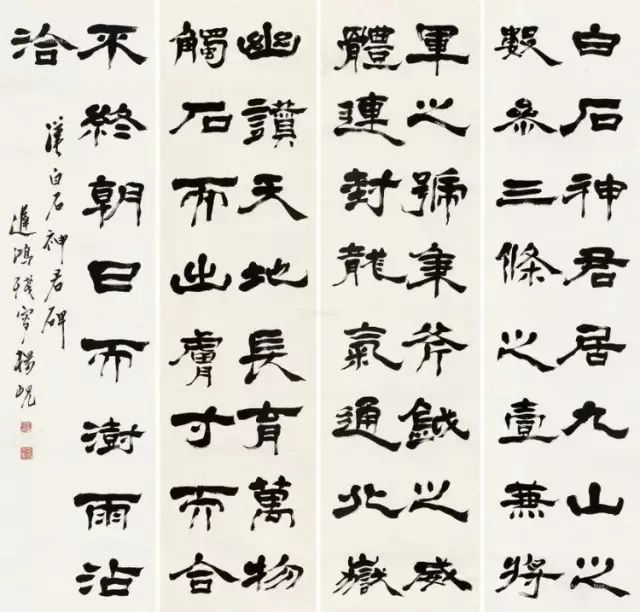 白石神君居九山之
數參三條之壹兼將
軍之號秉斧鉞之威
體連封龍氣通北嶽
幽讚天地長育萬物
觸石而出膚寸而合
不終朝日而澍雨沾
洽
漢白石神君碑
遲鴻殘叟楊峴